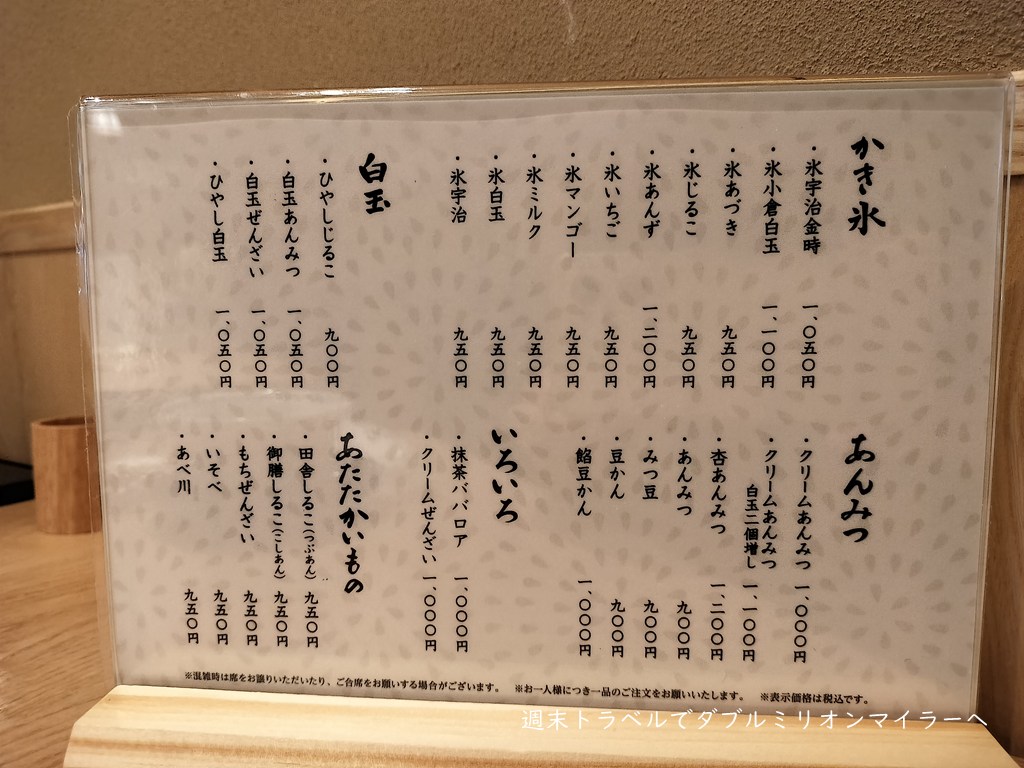 かき氷
・氷宇治金時 一、〇五〇円
・氷小倉白玉 一、一〇〇円
・氷あづき 九五〇円
・氷じるこ 九五〇円
・氷あんず 一、二〇〇円
・氷いちご 九五〇円
・氷マンゴー 九五〇円
・氷ミルク 九五〇円
・氷白玉 九五〇円
・氷宇治 九五〇円
白玉
・ひやしじるこ 九〇〇円
・白玉あんみつ 一、〇五〇円
・白玉ぜんざい 一、〇五〇円
・ひやし白玉 一、〇五〇円
あんみつ
・クリームあんみつ 一、〇〇〇円
・クリームあんみつ
白玉二個増し 一、一〇〇円
・杏あんみつ 一、二〇〇円
・あんみつ 九〇〇円
・みつ豆 九〇〇円
・豆かん 九〇〇円
・餡豆かん 一、〇〇〇円
いろいろ
・抹茶ババロア 一、〇〇〇円
・クリームぜんざい 一、〇〇〇円
あたたかいもの
・田舎しるこ(つぶあん) 九五〇円
・御膳しるこ(こしあん) 九五〇円
・もちぜんざい 九五〇円
・いそべ 九五〇円
・あべ川 九五〇円
※混雑時は席をお譲りいただいたり、ご合席をお願いする場合がございます。 ※お一人様につき一品のご注文をお願いいたします。 ※表示価格は税込です。
週末トラベルでダブルミリオンマイラーへ